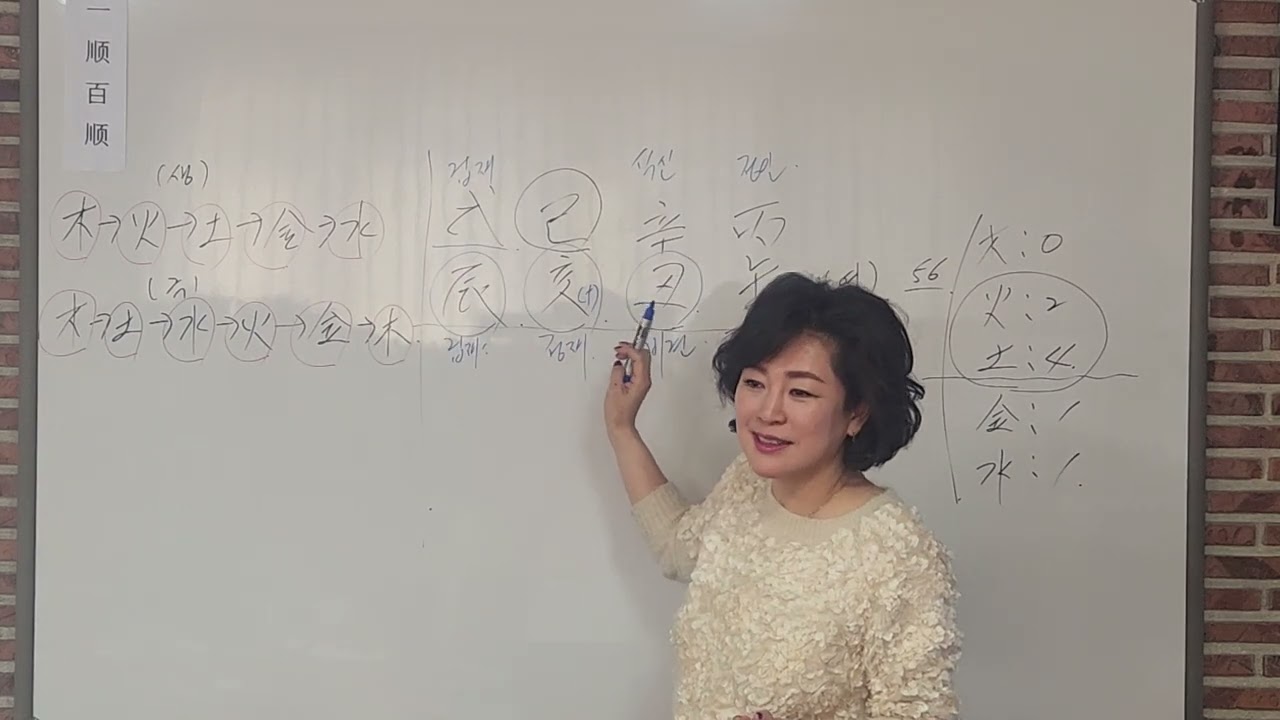 一
顺
百
顺
(생)
木→火→土→金→水
木→土→水→火→金→木
겁재 식신 정인
戊 己 辛 丙
辰 亥(+) 丑 午
겁재 정재 비견
56
木:0
火:2
土:4
金:1
水:1